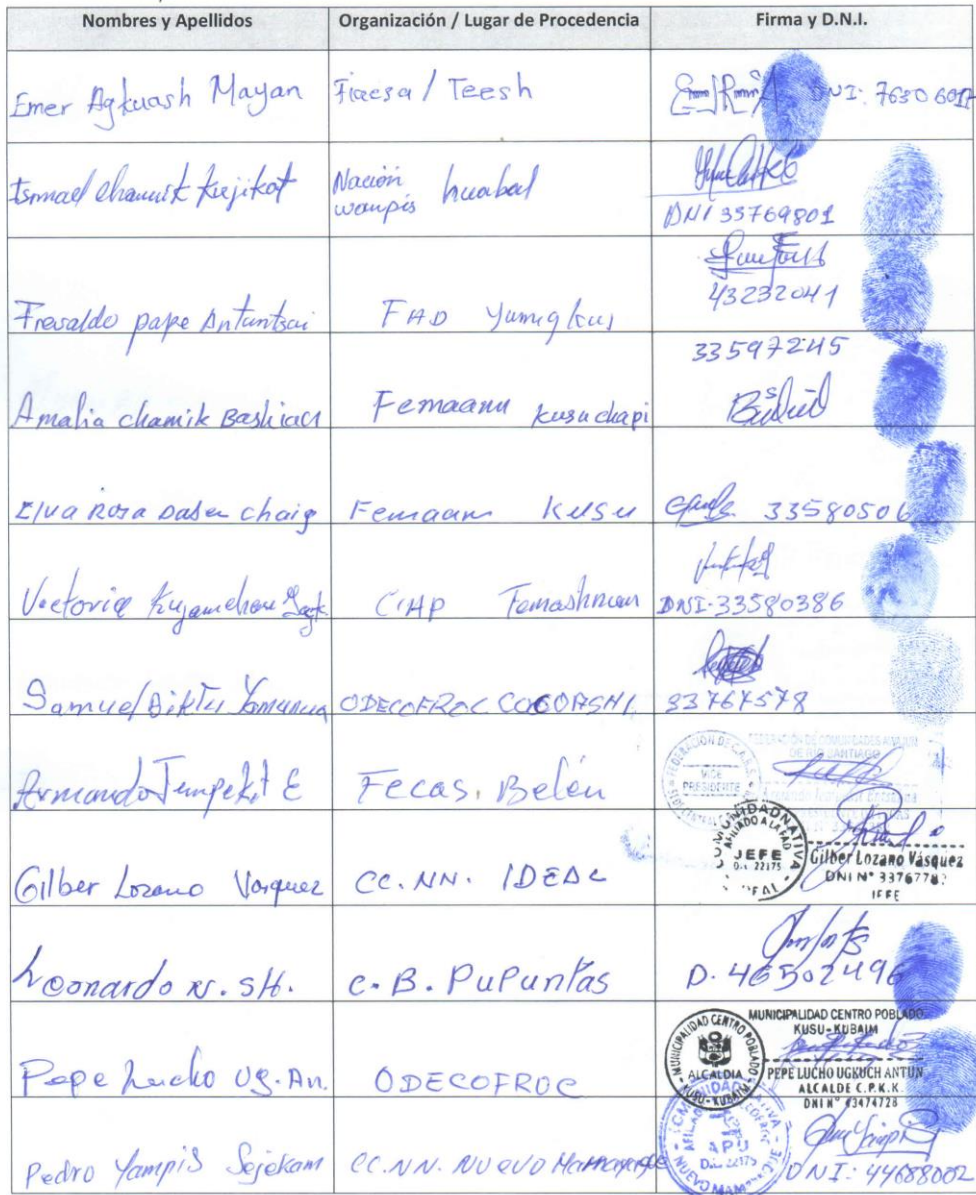 Nombres y Apellidos
Organización / Lugar de Procedencia
Firma y D.N.I.
Emer Agkuash Mayan
Fiaesa / Teesh
DNI: 76306017
Ismael chamik Kujikat
Nación wampis huabal
DNI 33769801
Fresaldo pape Antuntsai
FAD Yumigkus
43232041
Amalia chamik Bashian
Femaanu kusuchapi
33597245
Elva Rosa Daseu chaig
Femaam Kusu
33580506
Victoria
CIAP
DNI-33580386
Samuel
ODECOFROC COCOASHI
33767578
Armando Tempekit E
Fecas. Belén
FEDERACIÓN DE COMUNIDADES
DE RIO SANTIAGO
VICE
PRESIDENTE
Gilber Lozano Vasquez
CC.NN. IDEAL
COMUNIDAD NATIVA
AFILIADO A LA FAD
JEFE
IDEAL
Gilber Lozano Vásquez
DNI N° 3376778
JEFE
Leonardo W. SH.
C.B. PuPuntas
D. 46502496
Pepe Lucho Ug. An.
ODECOFROC
MUNICIPALIDAD CENTRO POBLADO
ALCALDIA
KUSU-KUBAIM
MUNICIPALIDAD CENTRO POBLADO
KUSU-KUBAIM
PEPE LUCHO UGKUCH ANTUN
ALCALDE C.P.K.K.
DNI N° 43474728
Pedro Yampis Sejekam
CC.NN. NUEVO
COMUNIDAD NATIVA
APU
NUEVO
DNI: 44688002